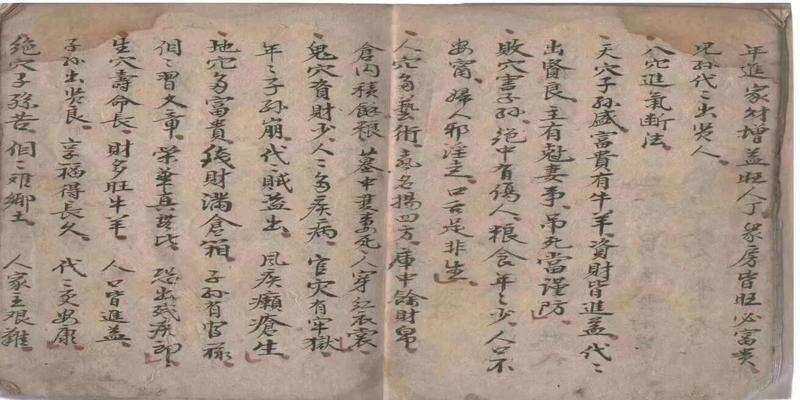 年進家財增益旺人丁眾房皆旺必富貴
兒孫代〻出貴人
八穴進氣断法
天穴子孫盛富貴有牛羊資財皆進益代〻
出賢良主有剋妻事吊死當謹防
敗穴害子孫絕中有傷人粮食年〻少人口不
安甯婦人邪淫走口舌是非生
人穴多藝術藝名揚四方庫中餘財帛
倉內積餘粮墓中妻妾死人穿紅衣裳
鬼穴資財少人〻多疾病官灾有牢獄
年〻子孫崩代〻賊益出風疾癩瘡生
地穴多富貴錢財滿倉箱子孫有官祿
個〻習文章榮華真堪比恐出残疾郎
生穴壽命長財多旺牛羊人口皆進益
子孫出賢良享福得長久代〻交安康
絕穴子孫苦個〻难鄉土人家主艰難